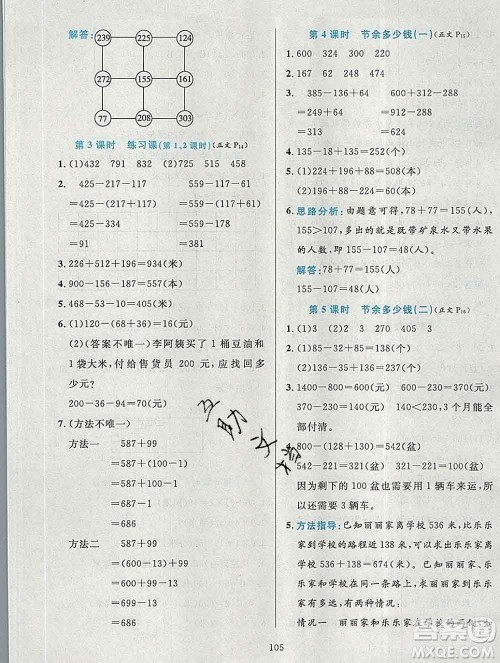 解答:
239 179 123
272 155 161
77 208 303
第3课时 练习课(第1、2课时)(正文P14)
1.(1)432 791 832 (2)725 515 458
2. 425-217-117 559-117-211
=425-334 =559-328
=91 =231
3. 226+512+196=934(米)
4. 900-(358+445)=97(元)
5. 468-53-10=405(米)
6. (1)200-(68+16)=116(元)
(2)(答案不唯一)李阿姨买了1桶豆油和
1袋大米,付给售货员200元,应找回多
少元?
200-36-94=70(元)
7. (方法不唯一)
方法一 587+99
=587+100-1
=687-1
=686
方法二 587+99
=(600-13)+99
=600+99-13
=699-13
=686
互助文档
第4课时 节余多少钱(一)(正文P15)
1. 600 324 300
2. 167 248 474
3. 385-14+64 600+312-288
=321+64 =912-288
4. 135-15+135=255(元)
5. (1)291+167=458(本)
(2)196+(196-68)=324(本)
6. 思路分析:由题意可得,78+77=155(人),
155>107,多出来的就是既带矿泉水又带水果
的人数,即155-107=48(人)。
解答:78+77=155(人)
155-107=48(人)
第5课时 节余多少钱(二)(正文P16)
1. (1)320 2 3 270 405 3
2. 285-(285-138)=138(个)
3. 1400-800=600(元)
600-190-190-190=30(元),3个月能全
部付清。
4. 800-(138+120)=542(盆)
542-221-221=100(盆)
因为剩下的100盆可以用1辆车运走,
所以还需要3辆车。
5. 方法指导:已知丽丽家离学校536米,比乐乐
家到学校的路程近138米,可以求出乐乐家
离学校有536+138=674(米)。又知丽丽
家、乐乐家和学校在同一条路上,求丽丽家到
乐乐家有多远有两种情况:
105
作业帮
MXQE.COM